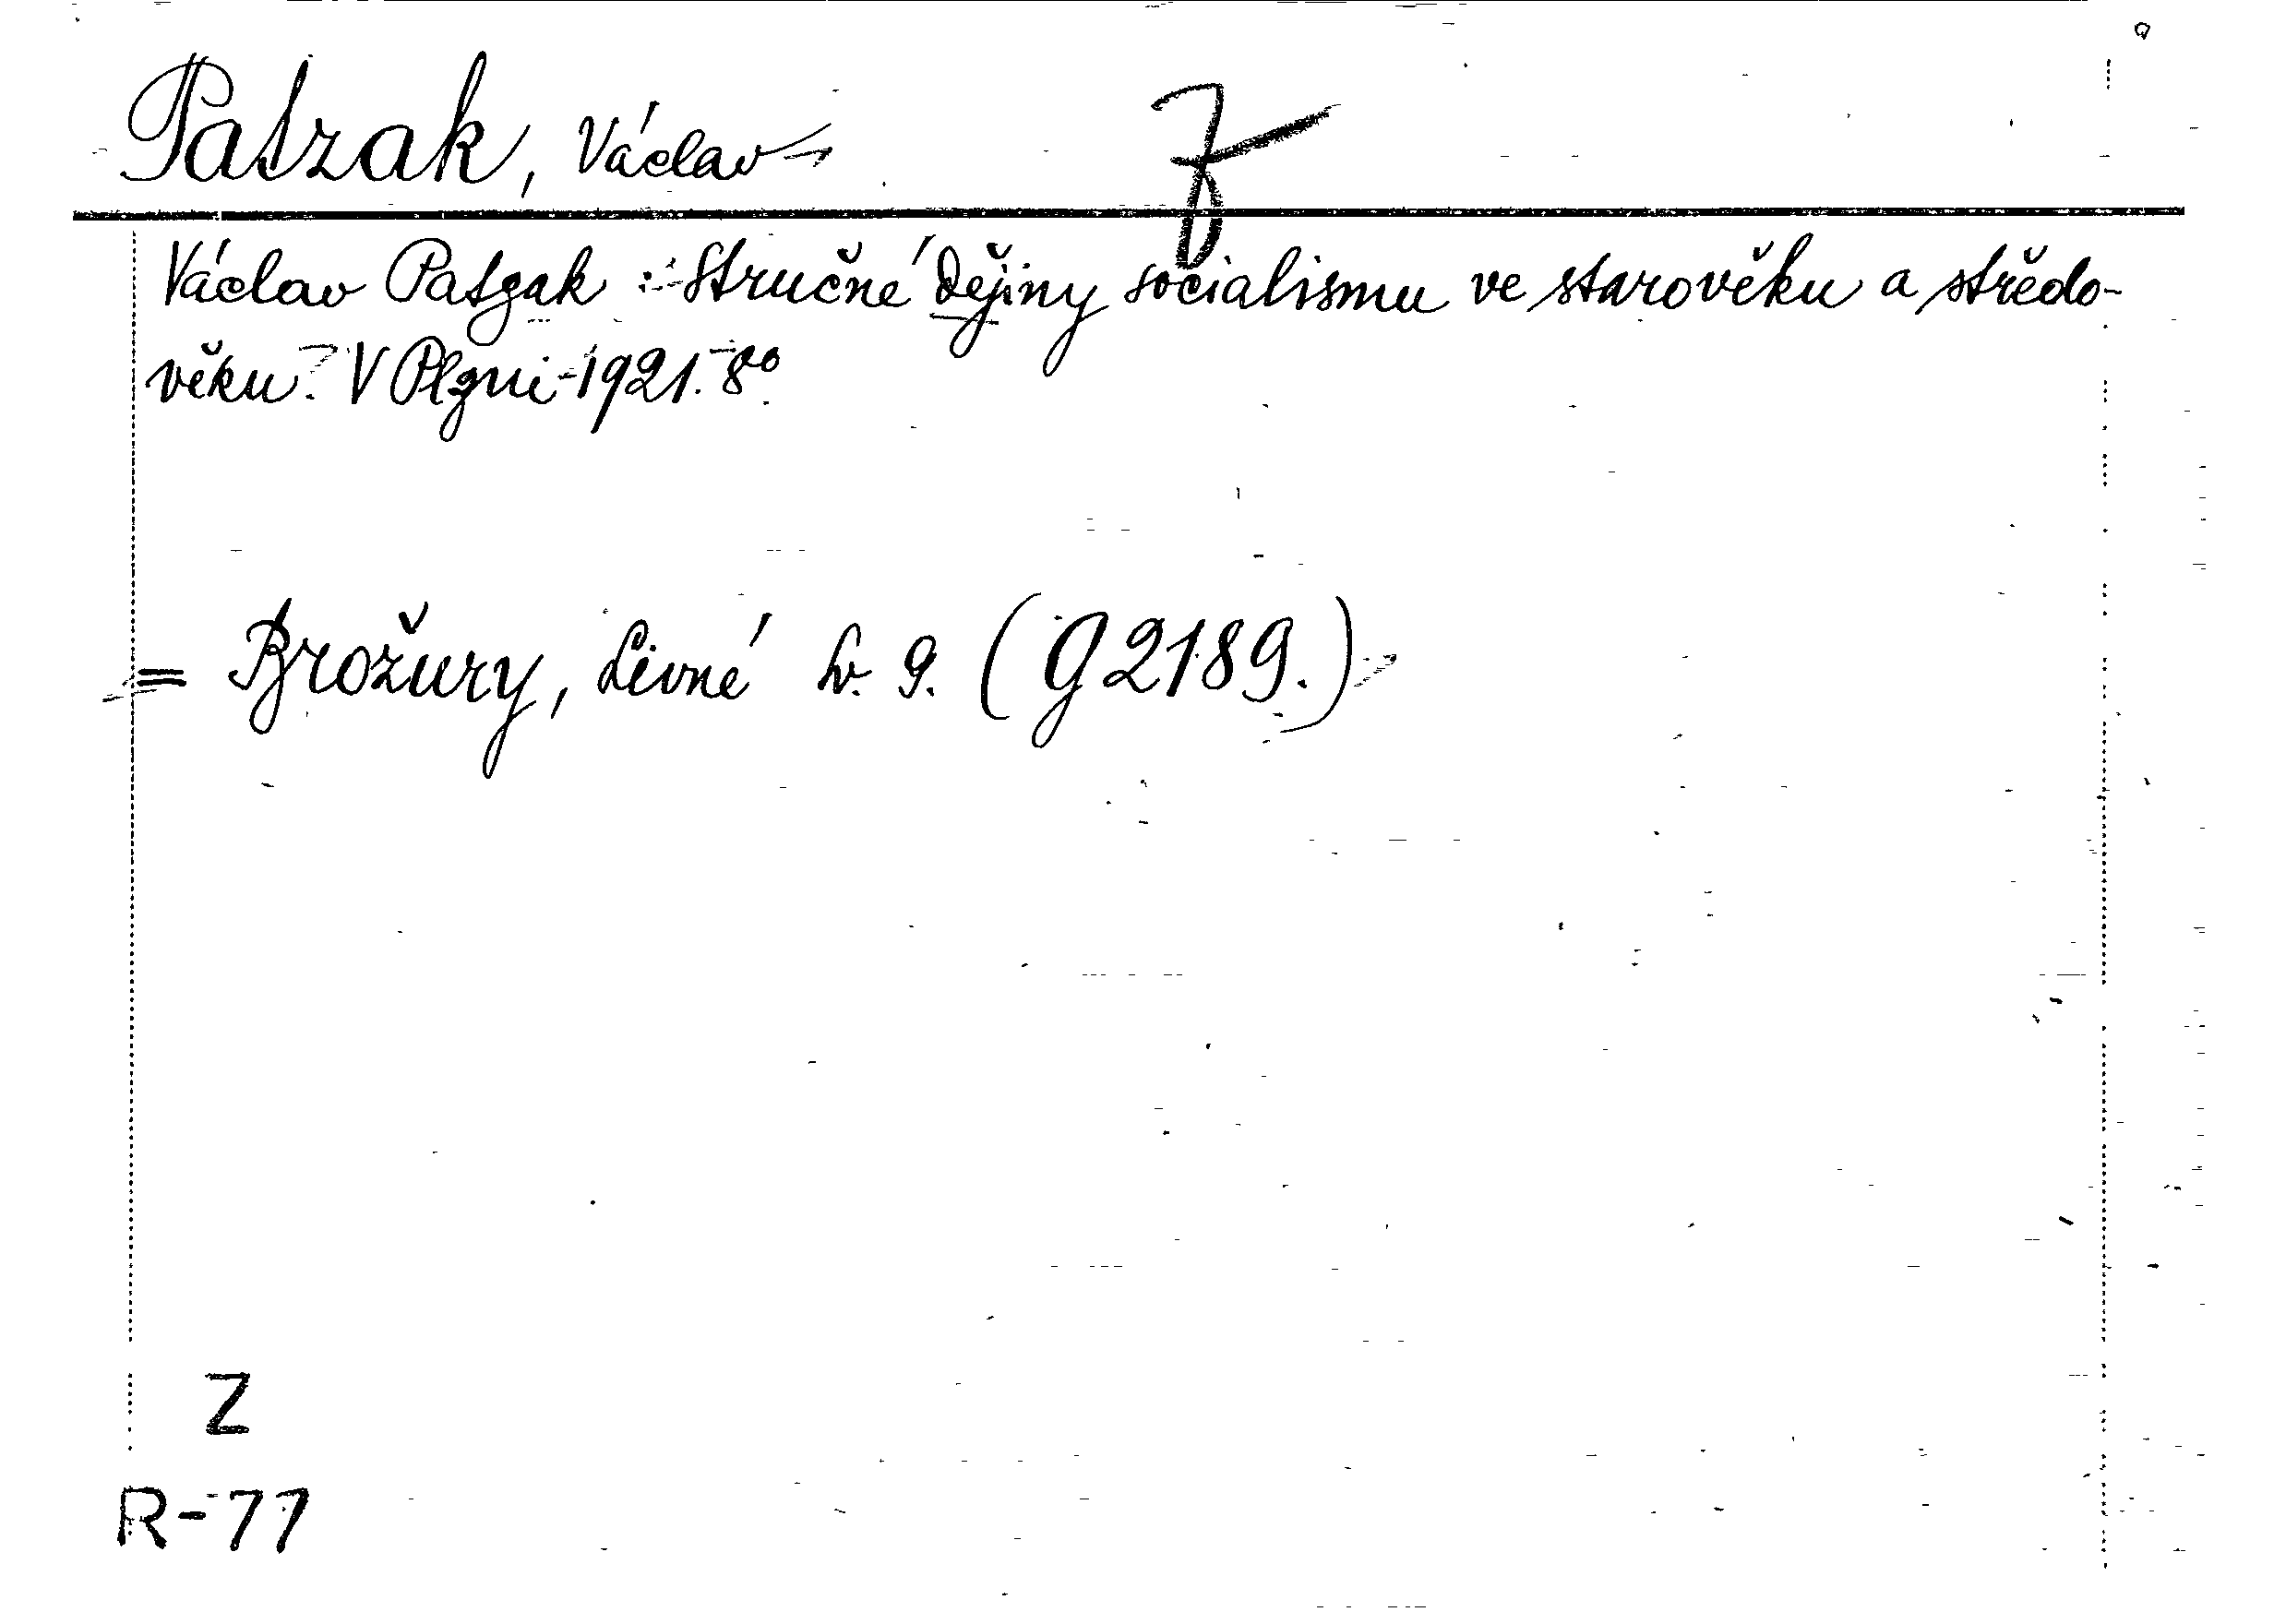 Patzak, Václav
Václav Patzak : Stručné dějiny socialismu ve starověku a středo-
věku. V Plzni 1921. 8°.
= Brožury, Levné sv. 9. (G 2189.)
Z
R-77